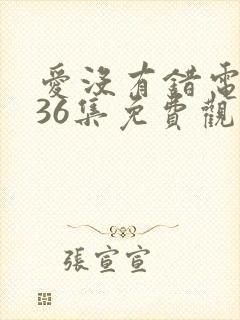 愛沒有錯電
36集免費觀
張宣宣